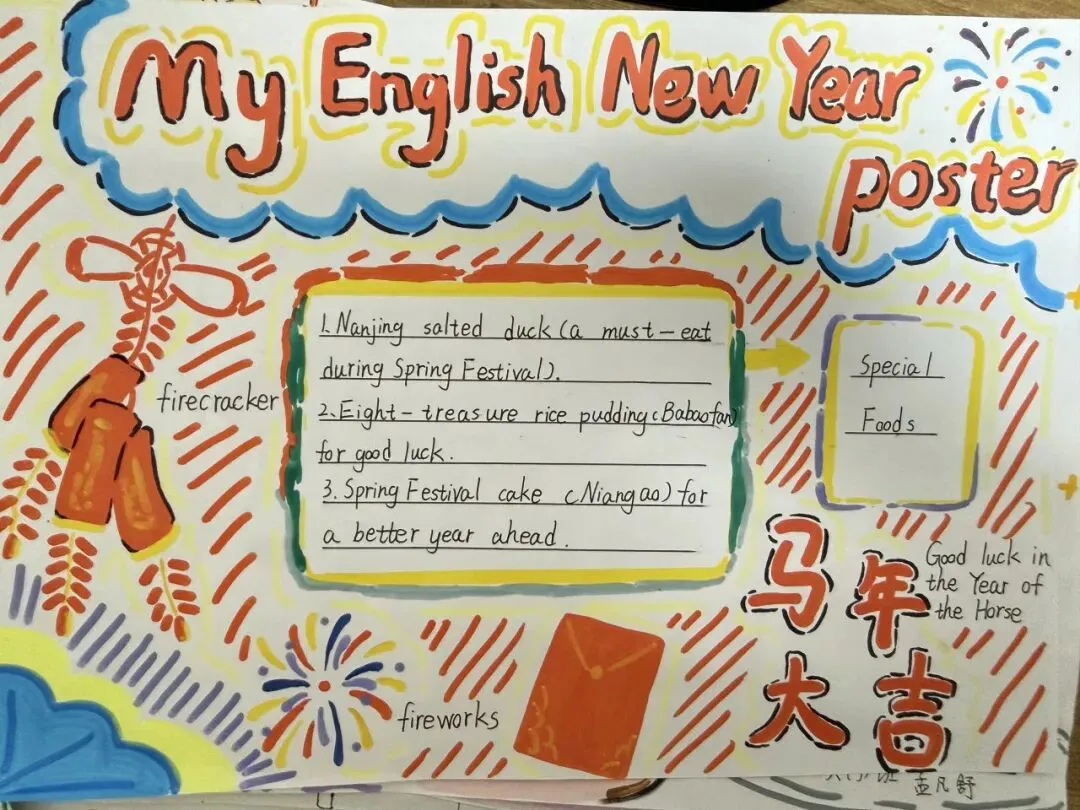 My English New Year
poster
1.Nanjing salted duck(a must-eat
during Spring Festival).
2.Eight-treasure rice pudding(Babaofan)
for good luck.
3.Spring Festival cake (Niangao) for
a better year ahead.
Special
Foods
firecracker
马年
大吉
Good luck in
the Year of
the Horse
fireworks
孟凡舒